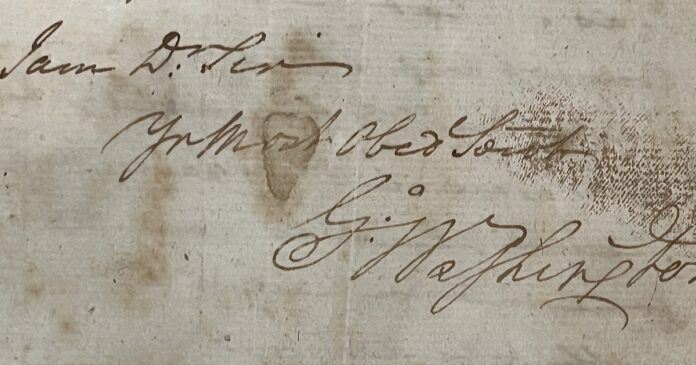 I am Dr. Sir
Yr Most Obed Servt
G: Washington